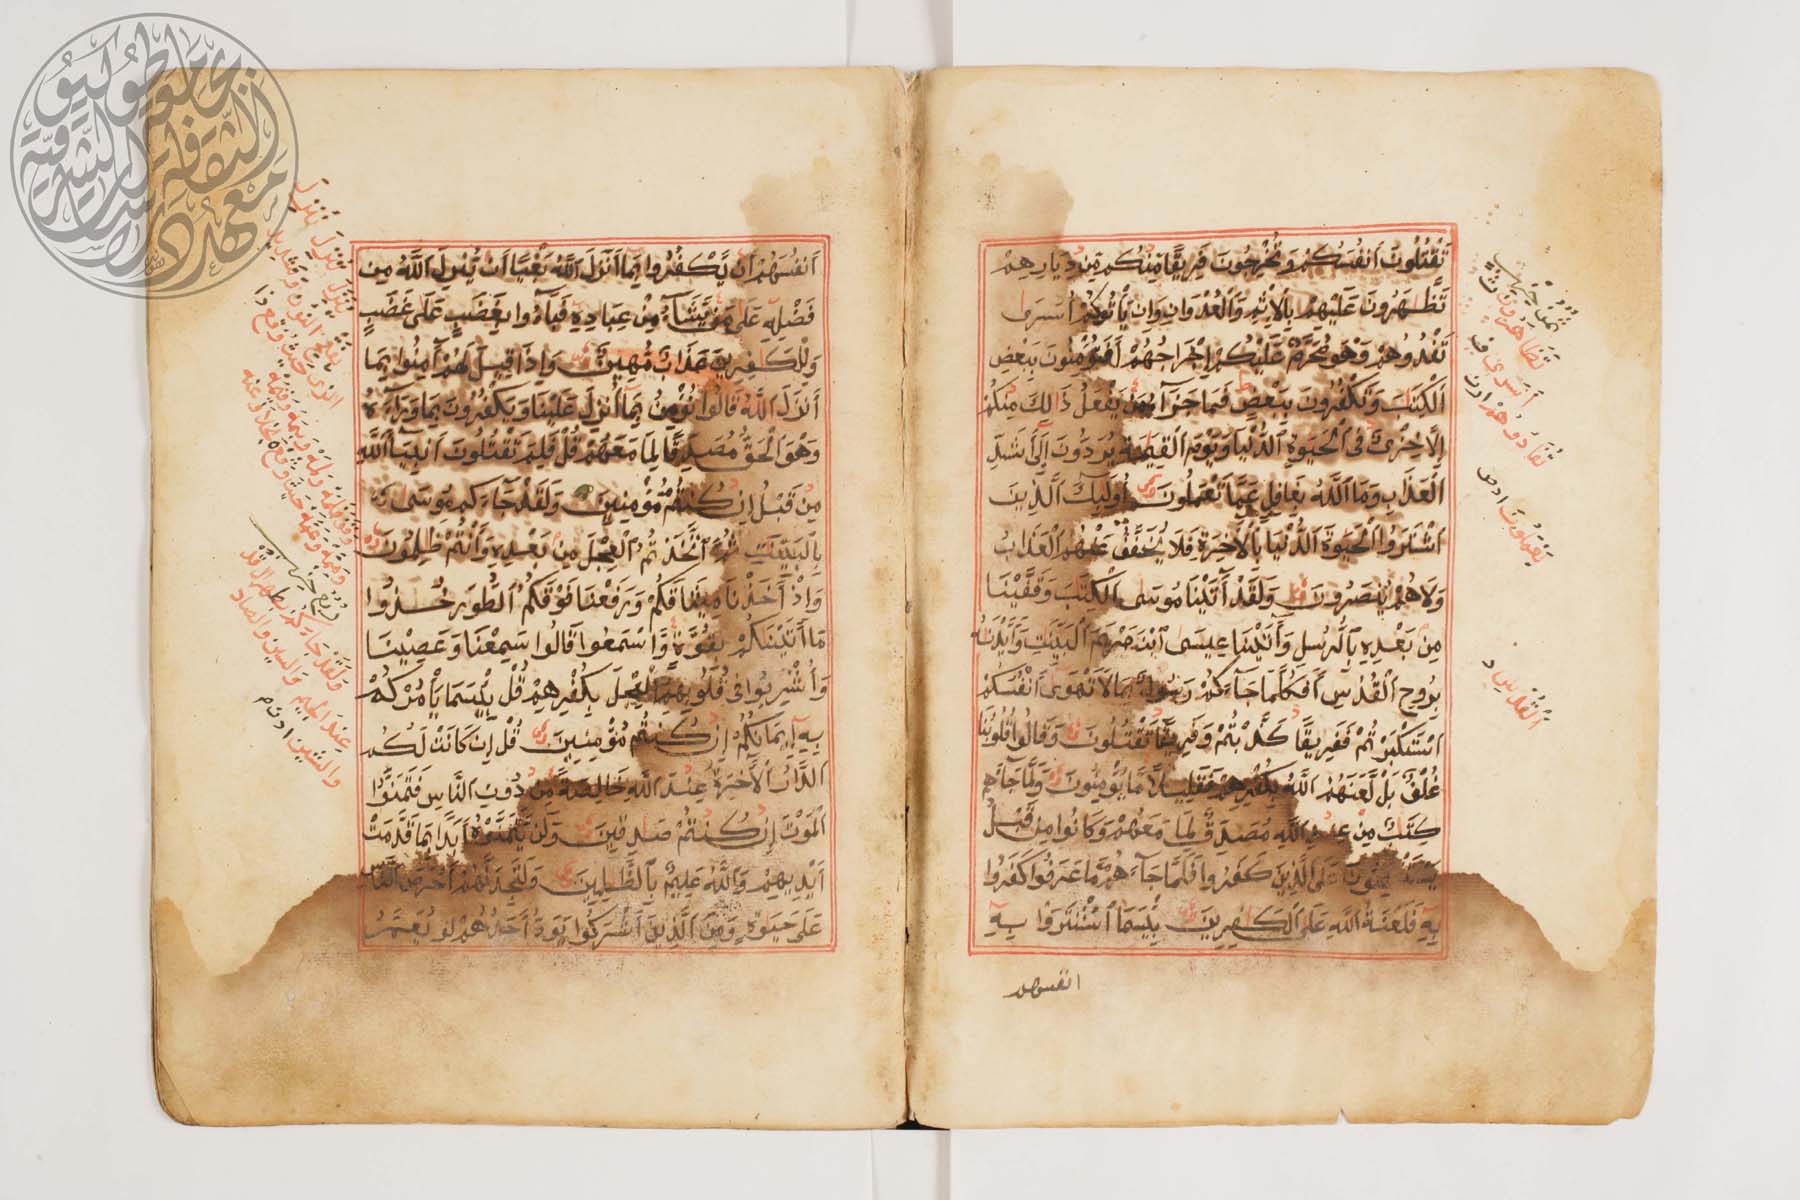 تَقْتُلُونَ أَنفُسَكُمْ وَتُخْرِجُونَ فَرِيقًا مِّنكُم مِّن دِيَارِهِمْ
تَظَّهَرُونَ عَلَيْهِم بِالْإِثْمِ وَالْعُدْوَانِ وَإِن يَأْتُوكُمْ أُسَرَى
تَفْدُوهُمْ وَهُوَ مُحَرَّمٌ عَلَيْكُمْ إِخْرَاجُهُمْ أَفَتُؤْمِنُونَ بِبَعْضِ
الْكِتَابِ وَتَكْفُرُونَ بِبَعْضٍ فَمَا جَزَآءُ مَن يَفْعَلُ ذَالِكَ مِنكُمْ
إِلَّا خِزْيٌ فِي الْحَيَوٰةِ الدُّنْيَا وَيَوْمَ الْقِيَٰمَةِ يُرَدُّونَ إِلَىٰ أَشَدِّ
الْعَذَابِ وَمَا اللَّهُ بِغَافِلٍ عَمَّا تَعْمَلُونَ أُولَٰئِكَ الَّذِينَ
اشْتَرَوُا الْحَيَوٰةَ الدُّنْيَا بِالْأَخِرَةِ فَلَا يُخَفَّفُ عَنْهُمُ الْعَذَابُ
وَلَا هُمْ يُنصَرُونَ وَلَقَدْ آتَيْنَا مُوسَى الْكِتَٰبَ وَقَفَّيْنَا
مِن بَعْدِهِ بِالرُّسُلِ وَأَتَيْنَا عِيسَى ابْنَ مَرْيَمَ الْبَيِّنَٰتِ وَأَيَّدْنَٰهُ
بِرُوحِ الْقُدُسِ أَفَكُلَّمَا جَآءَكُمْ رَسُولٌ بِمَا لَا تَهْوَى أَنفُسُكُمُ
اسْتَكْبَرْتُمْ فَفَرِيقًا كَذَّبْتُمْ وَفَرِيقًا تَقْتُلُونَ وَقَالُوا قُلُوبُنَا
غُلْفٌ بَل لَّعَنَهُمُ اللَّهُ بِكُفْرِهِمْ فَقَلِيلًا مَّا يُؤْمِنُونَ وَلَمَّا جَآءَهُمْ
كِتَٰبٌ مِّنْ عِندِ اللَّهِ مُصَدِّقٌ لِّمَا مَعَهُمْ وَكَانُوا مِن قَبْلُ
يَسْتَفْتِحُونَ عَلَى الَّذِينَ كَفَرُوا فَلَمَّا جَآءَهُم مَّا عَرَفُوا كَفَرُوا
بِهِ فَلَعْنَةُ اللَّهِ عَلَى الْكَٰفِرِينَ بِئْسَمَا اشْتَرَوْا بِهِ
انفسهم
تَظَّاهَرُونَ
أَسْرَىٰ
تُفَادُوهُمْ
يَعْمَلُونَ
الْقُدْسِ
أَنفُسَهُمْ أَن يَكْفُرُوا بِمَا أَنْزَلَ اللَّهُ بَغْيًا أَن يُنَزِّلَ اللَّهُ مِن
فَضْلِهِ عَلَىٰ مَن يَشَآءُ مِنْ عِبَادِهِ فَبَآءُوا بِغَضَبٍ عَلَىٰ غَضَبٍ
وَلِلْكَٰفِرِينَ عَذَابٌ مُّهِينٌ وَإِذَا قِيلَ لَهُمْ آمِنُوا بِمَا
أَنزَلَ اللَّهُ قَالُوا نُؤْمِنُ بِمَا أُنْزِلَ عَلَيْنَا وَيَكْفُرُونَ بِمَا وَرَآءَهُ
وَهُوَ الْحَقُّ مُصَدِّقًا لِّمَا مَعَهُمْ قُلْ فَلِمَ تَقْتُلُونَ أَنبِيَآءَ اللَّهِ
مِن قَبْلُ إِن كُنتُم مُّؤْمِنِينَ وَلَقَدْ جَآءَكُم مُّوسَىٰ
بِالْبَيِّنَٰتِ ثُمَّ اتَّخَذْتُمُ الْعِجْلَ مِن بَعْدِهِ وَأَنتُمْ ظَٰلِمُونَ
وَإِذْ أَخَذْنَا مِيثَاقَكُمْ وَرَفَعْنَا فَوْقَكُمُ الطُّورَ خُذُوا
مَا أَتَيْنَٰكُم بِقُوَّةٍ وَّاسْمَعُوا قَالُوا سَمِعْنَا وَعَصَيْنَا
وَأُشْرِبُوا فِي قُلُوبِهِمُ الْعِجْلَ بِكُفْرِهِمْ قُلْ بِئْسَمَا يَأْمُرُكُم
بِهِ إِيمَانُكُمْ إِن كُنتُم مُّؤْمِنِينَ قُلْ إِن كَانَتْ لَكُمُ
الدَّارُ الْأَخِرَةُ عِندَ اللَّهِ خَالِصَةً مِّن دُونِ النَّاسِ فَتَمَنَّوُا
الْمَوْتَ إِن كُنتُمْ صَٰدِقِينَ وَلَن يَتَمَنَّوْهُ أَبَدًا بِمَا قَدَّمَتْ
أَيْدِيهِمْ وَاللَّهُ عَلِيمٌ بِالظَّٰلِمِينَ وَلَتَجِدَنَّهُمْ أَحْرَصَ النَّاسِ
عَلَىٰ حَيَوٰةٍ وَمِنَ الَّذِينَ أَشْرَكُوا يَوَدُّ أَحَدُهُمْ لَوْ يُعَمَّرُ